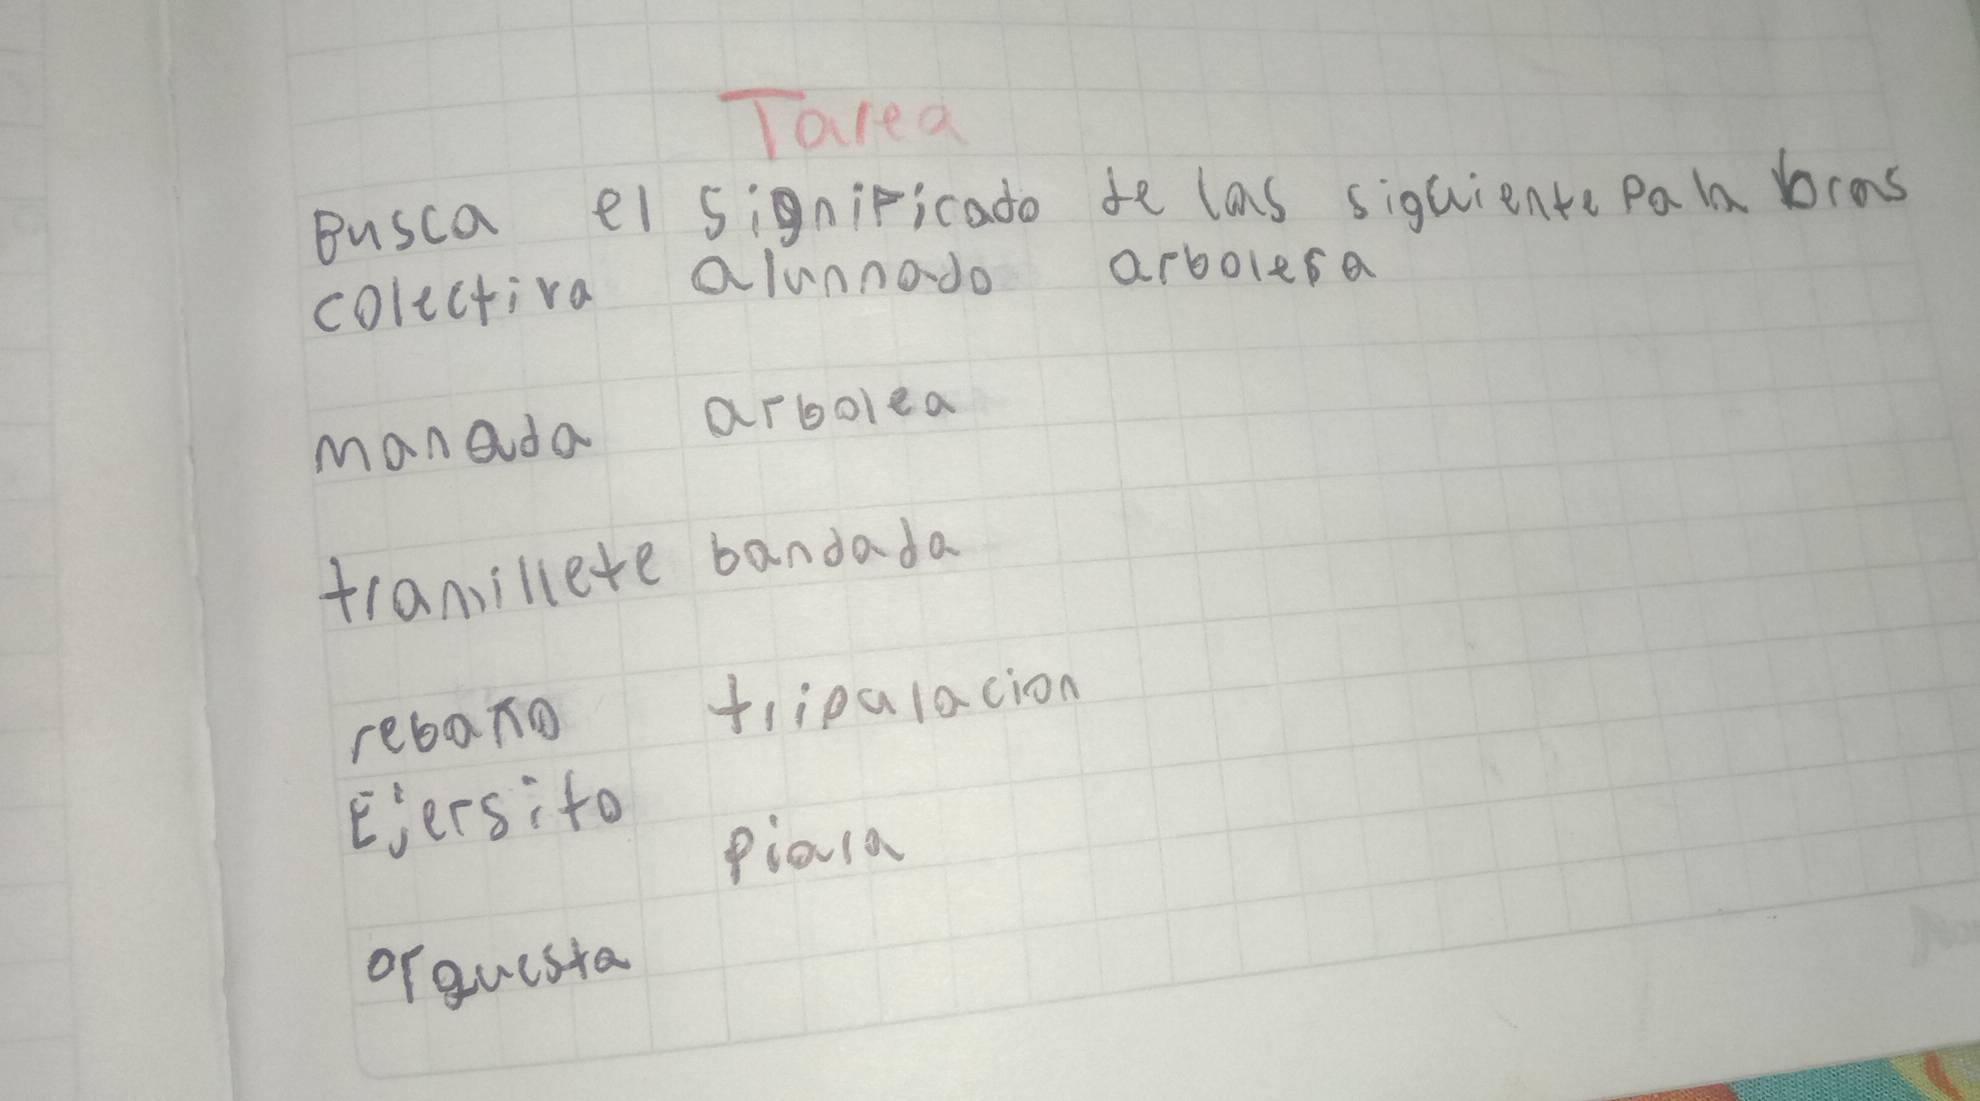 Tarea
Busca el significado de las siguiente palabras
colectiva alunnado arbolesa
manada arbolea
tramillete bandada
rebaño tripulacion
Ejersito
piara
orquesta